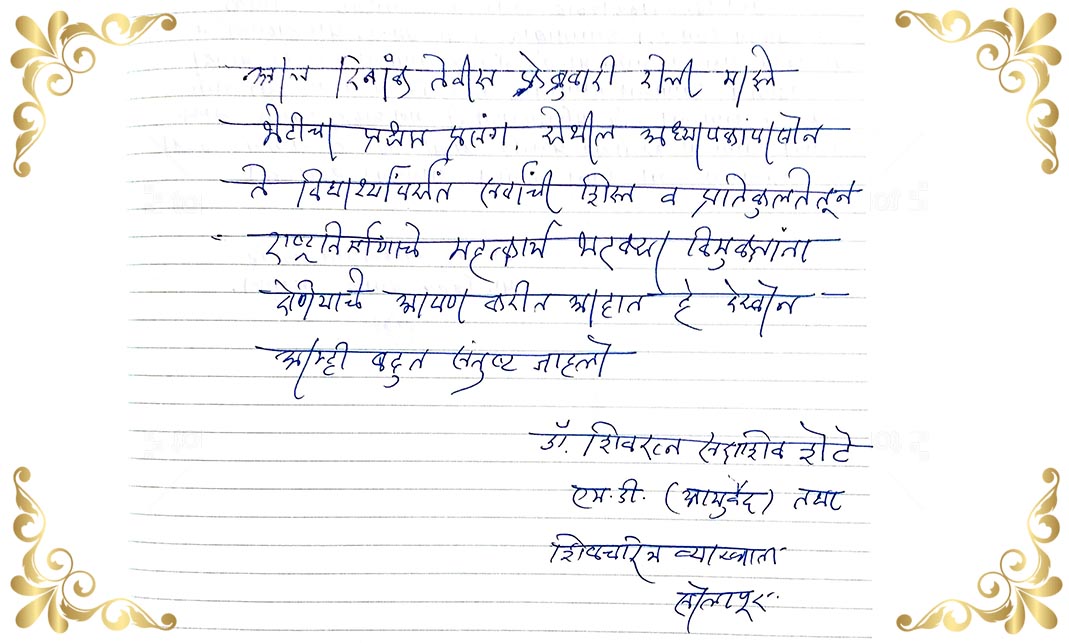 आज दिनांक तेवीस फेब्रुवारी रोजी माझे
भेटीचा प्रथम प्रसंग. येथील अध्यापकांपासोन
ते विद्यार्थ्यांपर्यंत सर्वांची शिस्त व प्रतिकुलतेतून
राष्ट्रनिर्माणाचे महत्कार्य भटक्या विमुक्तांना
घेणेयाचे आपण करीत आहात हे देखोन
आम्ही बहुत संतुष्ट जाहलो
डॉ. शिवरत्न सदाशिव शेटे
एम.डी. (आयुर्वेद) तथा
शिवचरित्र व्याख्याता
सोलापूर.